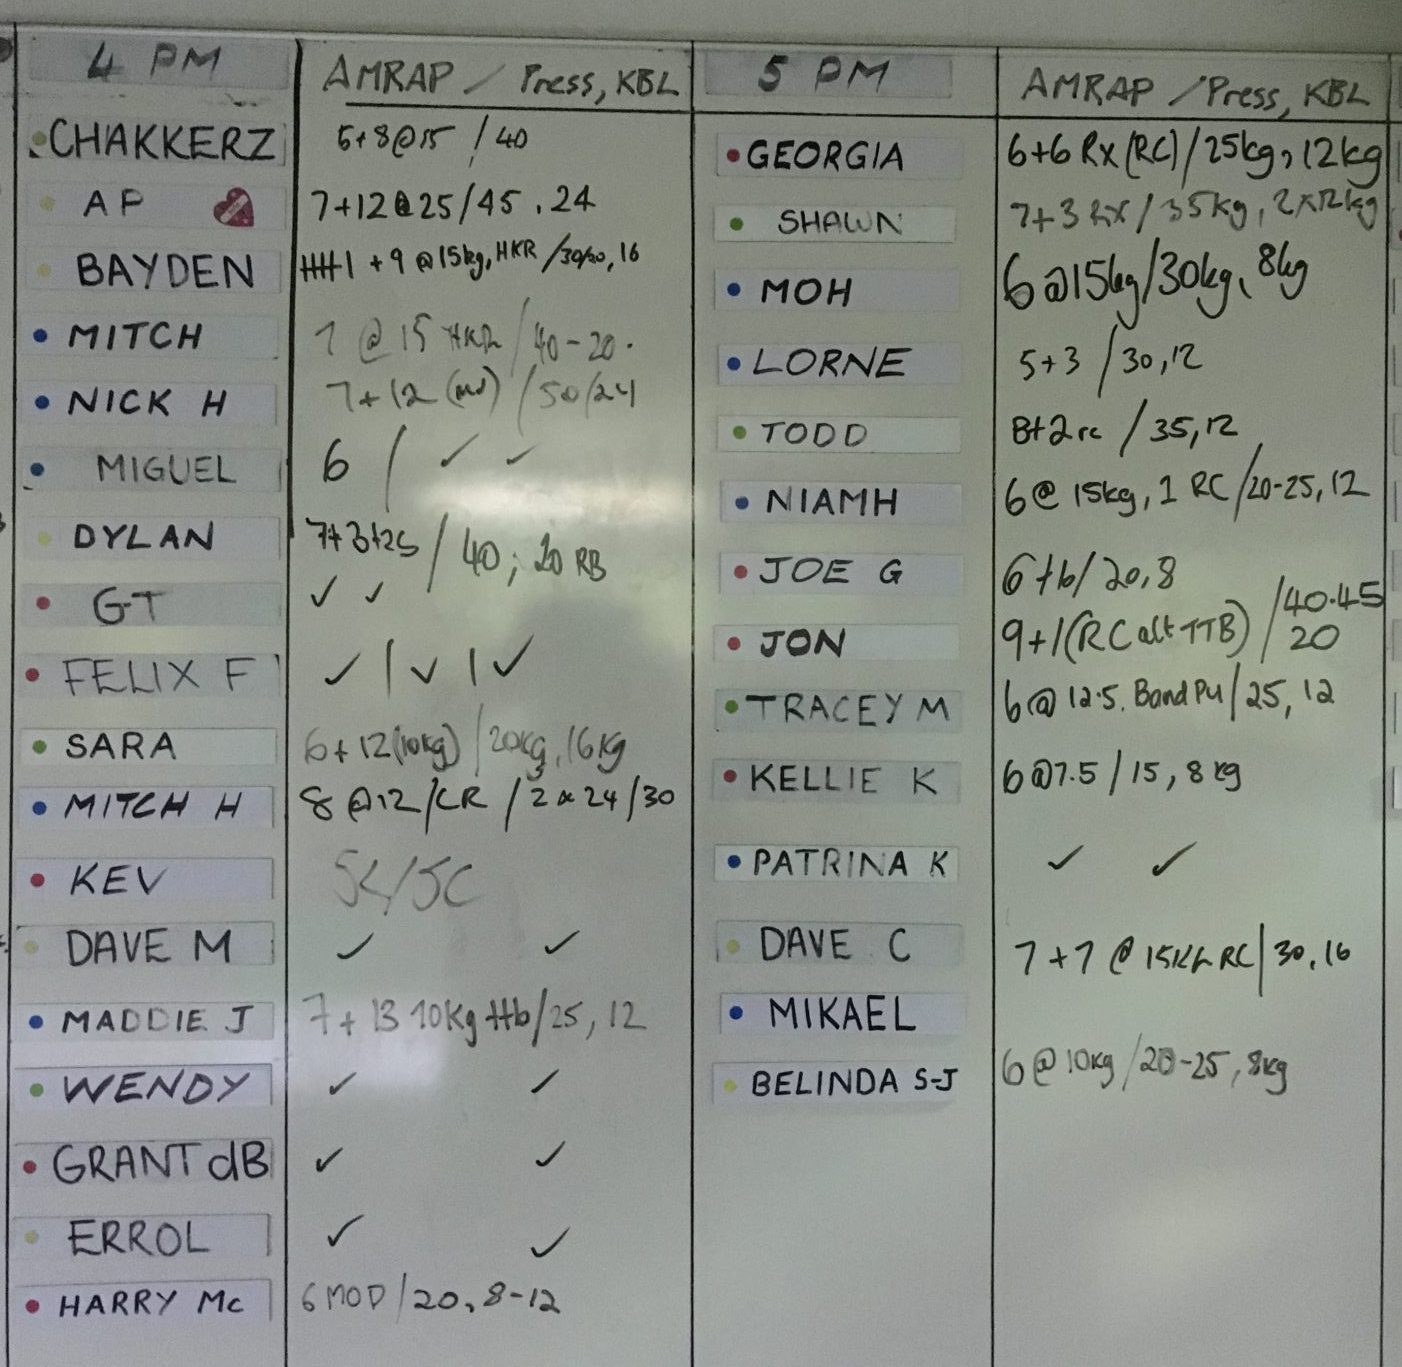 4 PM
AMRAP / Press, KBL
CHAKKERZ 6+8@15 / 40
AP 7+12@25/45, 24
BAYDEN 𝍸1 + 9 @15kg, HKR /30/30, 16
MITCH 7 @ 15 HKR / 40-20.
NICK H 7+12 / 50/24
MIGUEL 6 / ✓ ✓
DYLAN 7+3+25 / 40; 20 RB
GT ✓ ✓
FELIX F ✓ | ✓ | ✓
SARA 6+12(10kg) / 20kg, 16kg
MITCH H 8 @12/CR / 2x24/30
KEV
DAVE M ✓ ✓
MADDIE J 7+13 10kg ttb/25, 12
WENDY ✓ ✓
GRANT dB ✓ ✓
ERROL ✓ ✓
HARRY Mc 6 MOD / 20, 8-12
5 PM
AMRAP / Press, KBL
GEORGIA 6+6 Rx (RC) / 25kg, 12kg
SHAWN 7+3 Rx / 35kg, 2x12kg
MOH 6 @15kg/30kg, 8kg
LORNE 5+3 / 30,12
TODD 8+2 rc / 35,12
NIAMH 6@ 15kg, 1 RC /20-25, 12
JOE G 6+6/20,8
JON 9+1(RC alt TTB) / 40.45
20
TRACEY M 6@ 12.5. Band PU / 25, 12
KELLIE K 6@7.5 / 15, 8kg
PATRINA K ✓ ✓
DAVE C 7+7 @ 15kg RC | 30, 16
MIKAEL
BELINDA S-J 6@10kg /20-25, 8kg